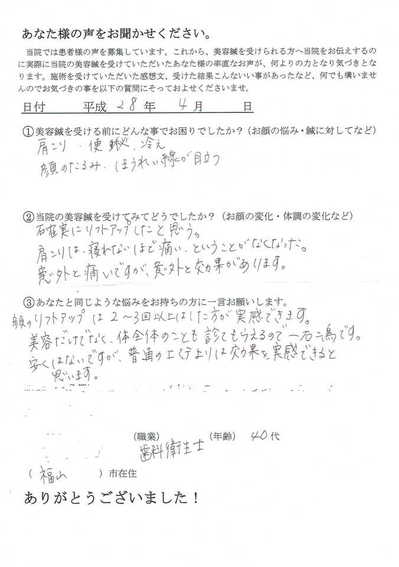 あなた様の声をお聞かせください。
当院では患者様の声を募集しています。これから、美容鍼を受けられる方へ当院をお伝えするの
に実際に当院の美容鍼を受けていただいたあなた様の率直なお声が、何よりの力となり気づきとな
ります。施術を受けていただいた感想文、受けた結果こんないい事があったなど、何でも構いませ
んのでお気づきの事を以下の質問にそっておよせくださいませ。
日付 平成 28 年 4 月 日
①美容鍼を受ける前にどんな事でお困りでしたか？（お顔の悩み・鍼に対してなど）
肩こり・便秘、冷え
顔のたるみ、ほうれい線が目立つ
②当院の美容鍼を受けてみてどうでしたか？（お顔の変化・体調の変化など）
確実にリフトアップしたと思う。
肩こりは、寝れないほど痛い、ということがなくなった。
意外と痛いですが、意外と効果があります。
③あなたと同じような悩みをお持ちの方に一言お願いします。
顔のリフトアップは2～3回以上はした方が実感できます。
美容だけでなく、体全体のことも診てもらえるので一石二鳥です。
安くはないですが、普通のエステよりは効果を実感できると
思います。
（職業） 歯科衛生士 （年齢） 40代
（ 福山 ）市在住
ありがとうございました！